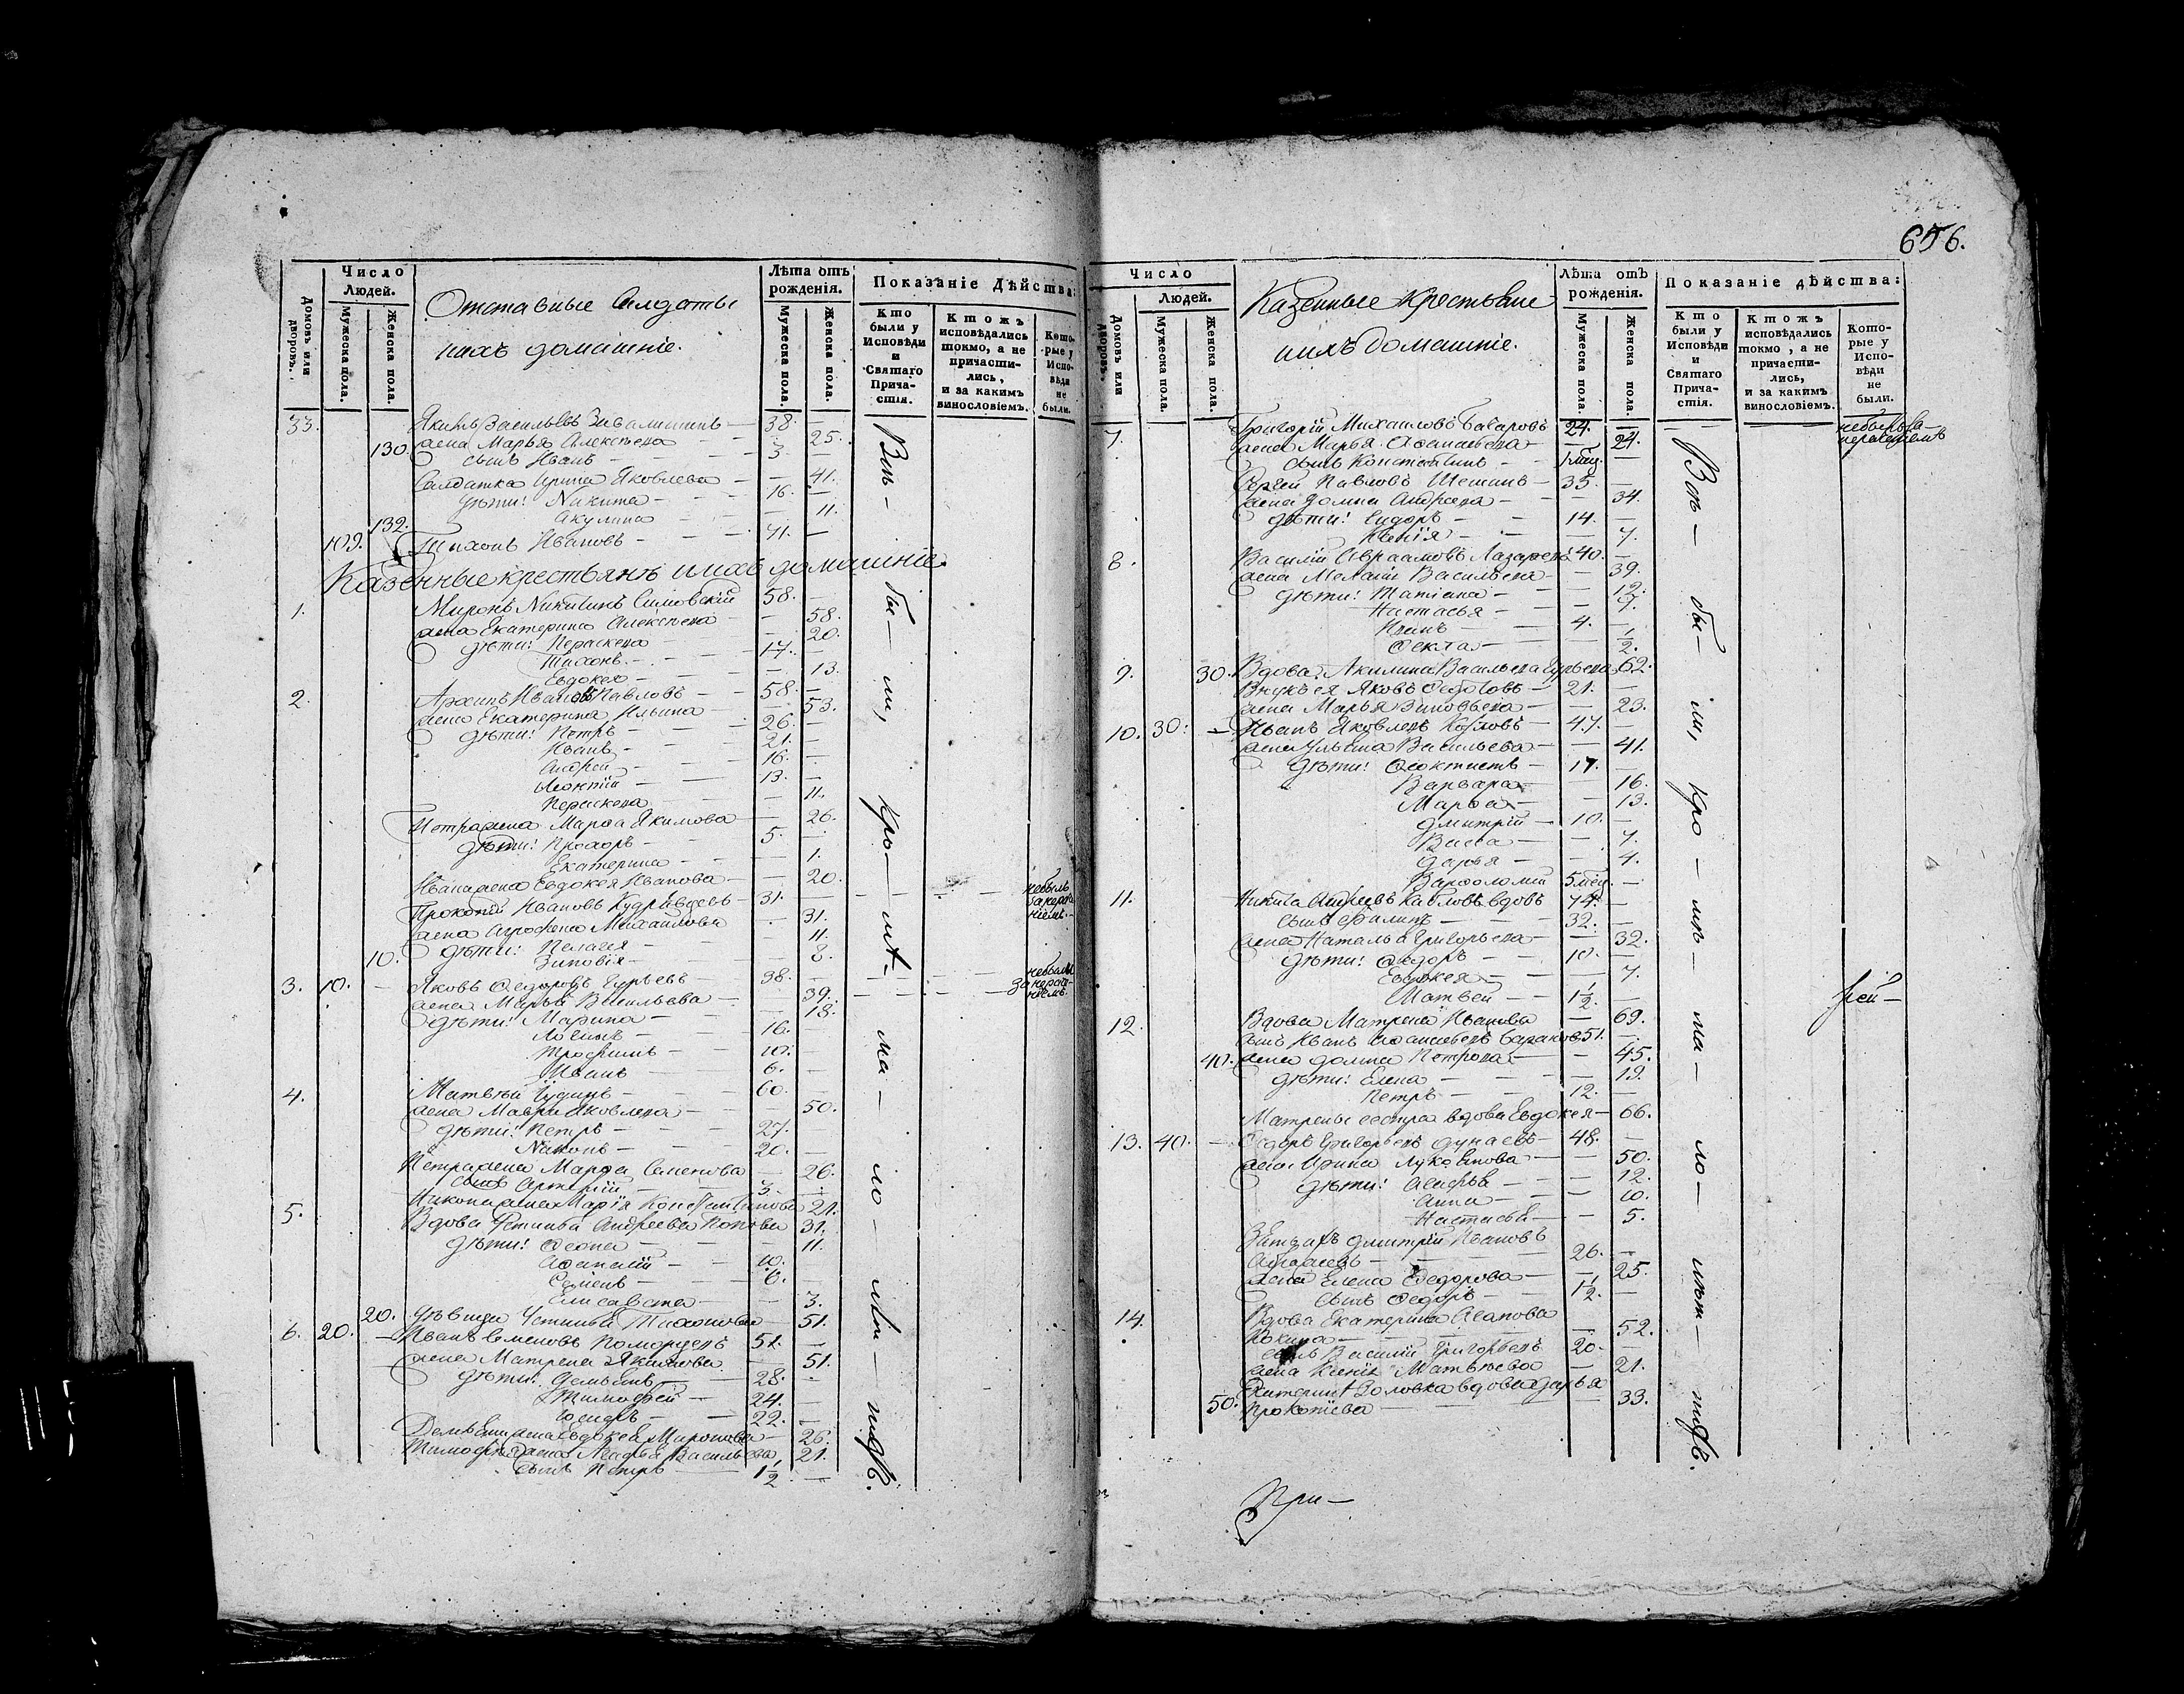 656.
Число
Людей.
Домовъ или дворовъ.
Мужеска пола.
Женска пола.
Отставные Салдаты
ихъ домашніе.
Лѣта отъ
рожденія.
Мужеска пола.
Женска пола.
Показаніе Дѣйства:
Кто были у Исповѣди и Святаго Причастія.
Ктожъ исповѣдались токмо, а не причастились, и за какимъ винословіемъ.
Которые у Исповѣди не были.
33. Якимъ Васильевъ — 38. —
130. жена Марья Алексѣева — 25.
сынъ Иванъ — 3. —
Салдатка Ирина Яковлева — 41.
дѣти: Никита — 16. —
Акулина — 11.
132.
109. Тихонъ Ивановъ — 71. —
Казенные крестьянѣ ихъ домашніе.
1. Миронъ Никитинъ 58. —
жена Екатерина Алексѣева — 58.
дѣти: Пераскева 20.
Тихонъ — 17. —
Евдокея — 13.
2. Архипъ Ивановъ Павловъ — 58. —
жена Екатерина Ильина — 53.
дѣти: Петръ — 26. —
Иванъ — 21. —
Андрей — 16. —
Леонтій — 13. —
Пераскева — 11.
Петра жена Марѳа Якимова — 26.
дѣти: Прохоръ — 5. —
Екатерина — 1.
Ивана жена Евдокея Иванова — 20.
Прокопій Ивановъ Кудрявцевъ — 31. — небылъ за нераченіемъ.
жена Агрофена Михайлова — 31.
дѣти: Пелагея — 11.
10. Зиновія — 8.
3. 10. — Яковъ Ѳедоровъ Гурьевъ 38. — небыли за нераченіемъ.
жена Марья Васильева — 39.
дѣти: Марина — 18.
Логинъ — 16. —
Трофимъ — 10. —
Иванъ — 6. —
4. Матвѣй Юдинъ — 60. —
жена Мавра Яковлева — 50.
дѣти: Петръ — 27. —
Никонъ — 20. —
Петра жена Марѳа Семенова — 26.
сынъ Артемій — 3. —
Никона жена Марія Константинова 21.
5. Вдова Устинья Андреева Попова 31.
дѣти: Ѳеона — 11.
Аѳанасій — 10. —
Семенъ — 6. —
Елисавета — 3.
20. дѣвица Устинья Тихонова 51.
6. 20. — Иванъ Семеновъ Поморцевъ 51. —
жена Матрена Якимова — 51.
дѣти: Демьянъ — 28. —
Тимофей — 24. —
22. —
Демьяна жена Евдокея Миронова — 26.
Тимофея жена Агафья Васильева 21.
сынъ Петръ — 1/2 —
Всѣ — бы — ли, кро — мѣ — ма — ло — лѣт — нихъ.
Число
Людей.
Домовъ или дворовъ.
Мужеска пола.
Женска пола.
Казенные крестьяне
ихъ домашніе.
Лѣта отъ
рожденія.
Мужеска пола.
Женска пола.
Показаніе дѣйства:
Кто были у Исповѣди и Святаго Причастія.
Ктожъ исповѣдались токмо, а не причастились, и за какимъ винословіемъ.
Которые у Исповѣди не были.
7. Григорій Михаиловъ 24. —
жена Марья Аѳанасьева — 24.
сынъ Константинъ — 1 мѣц. —
Сергей Павловъ — 35. —
жена Домна Андреева — 34.
дѣти: Сидоръ — 14. —
Ксенія — 7.
8. Василій Авраамовъ Лазаревъ 40. —
жена Меланія Васильева — 39.
дѣти: Татіана — 12.
Настасья — 7.
4. —
Ѳекла — 1/2.
9. 30. Вдова Акилина Васильева Гурьева 62.
Внукъ ея Яковъ Ѳедотовъ — 21. —
жена Марья Зиновьева — 23.
10. 30. — Иванъ Яковлевъ Козловъ — 47. —
жена Ульяна Васильева — 41.
дѣти: Ѳеоктистъ — 17. —
Варвара — 16.
Марѳа — 13.
Дмитрій — 10. —
Васса — 7.
Дарья — 4.
Варѳоломій 5 мѣц. —
11. Никита вдовъ 74. —
сынъ Филипъ — 32. —
жена Наталья Григорьева — 32.
дѣти: Ѳедоръ — 10. —
Евдокея — 7.
Матвей — 1 1/2 —
12. Вдова Матрена Иванова — 69.
сынъ Иванъ 51. —
40. жена Домна Петрова — 45.
дѣти: Елена — 19.
Петръ — 12. —
Матрены сестра вдова Евдокея — 66.
13. 40. — Ѳедоръ Григорьевъ Дунаевъ — 48. —
жена Ирина — 50.
дѣти: Агафья — 12.
Анна — 10.
Настасья — 5.
Дмитрій Ивановъ
26. —
жена Елена Ѳедорова — 25.
сынъ Ѳедоръ — 1/2. —
14. Вдова Екатерина
52.
сынъ Василій Григорьевъ 20. —
жена Ксенія Матвѣева — 21.
Екатерины золовка вдова Дарья
50. Прокопіева — 33.
Всѣ — бы — ли, кро — мѣ — ма — ло — лѣт — нихъ.
При —